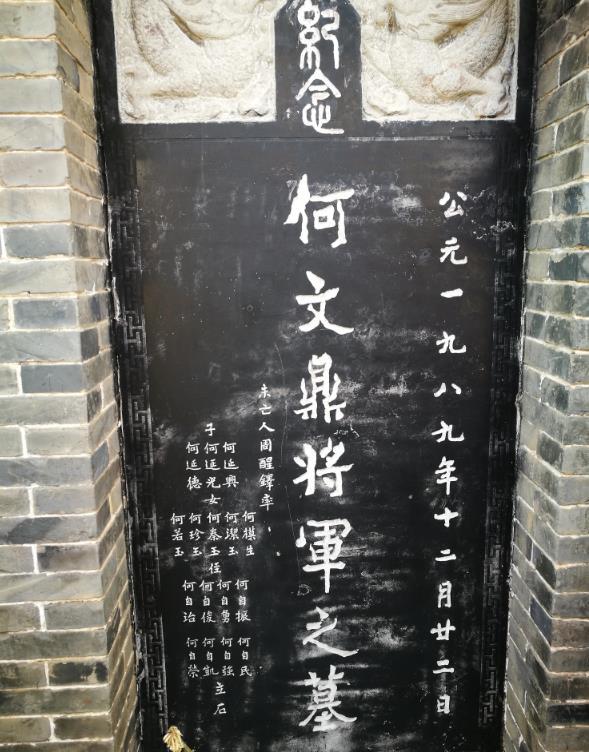 紀念
公元一九八九年十二月廿二日
何文鼎將軍之墓
未亡人周醒鐸率
何延興
子何延光女
何延德
何模生
何潔玉
何秦玉侄
何珍玉
何若玉
何自振
何自勇
何自俊
何自治
何自民
何自強
何自凱
何自榮
立石